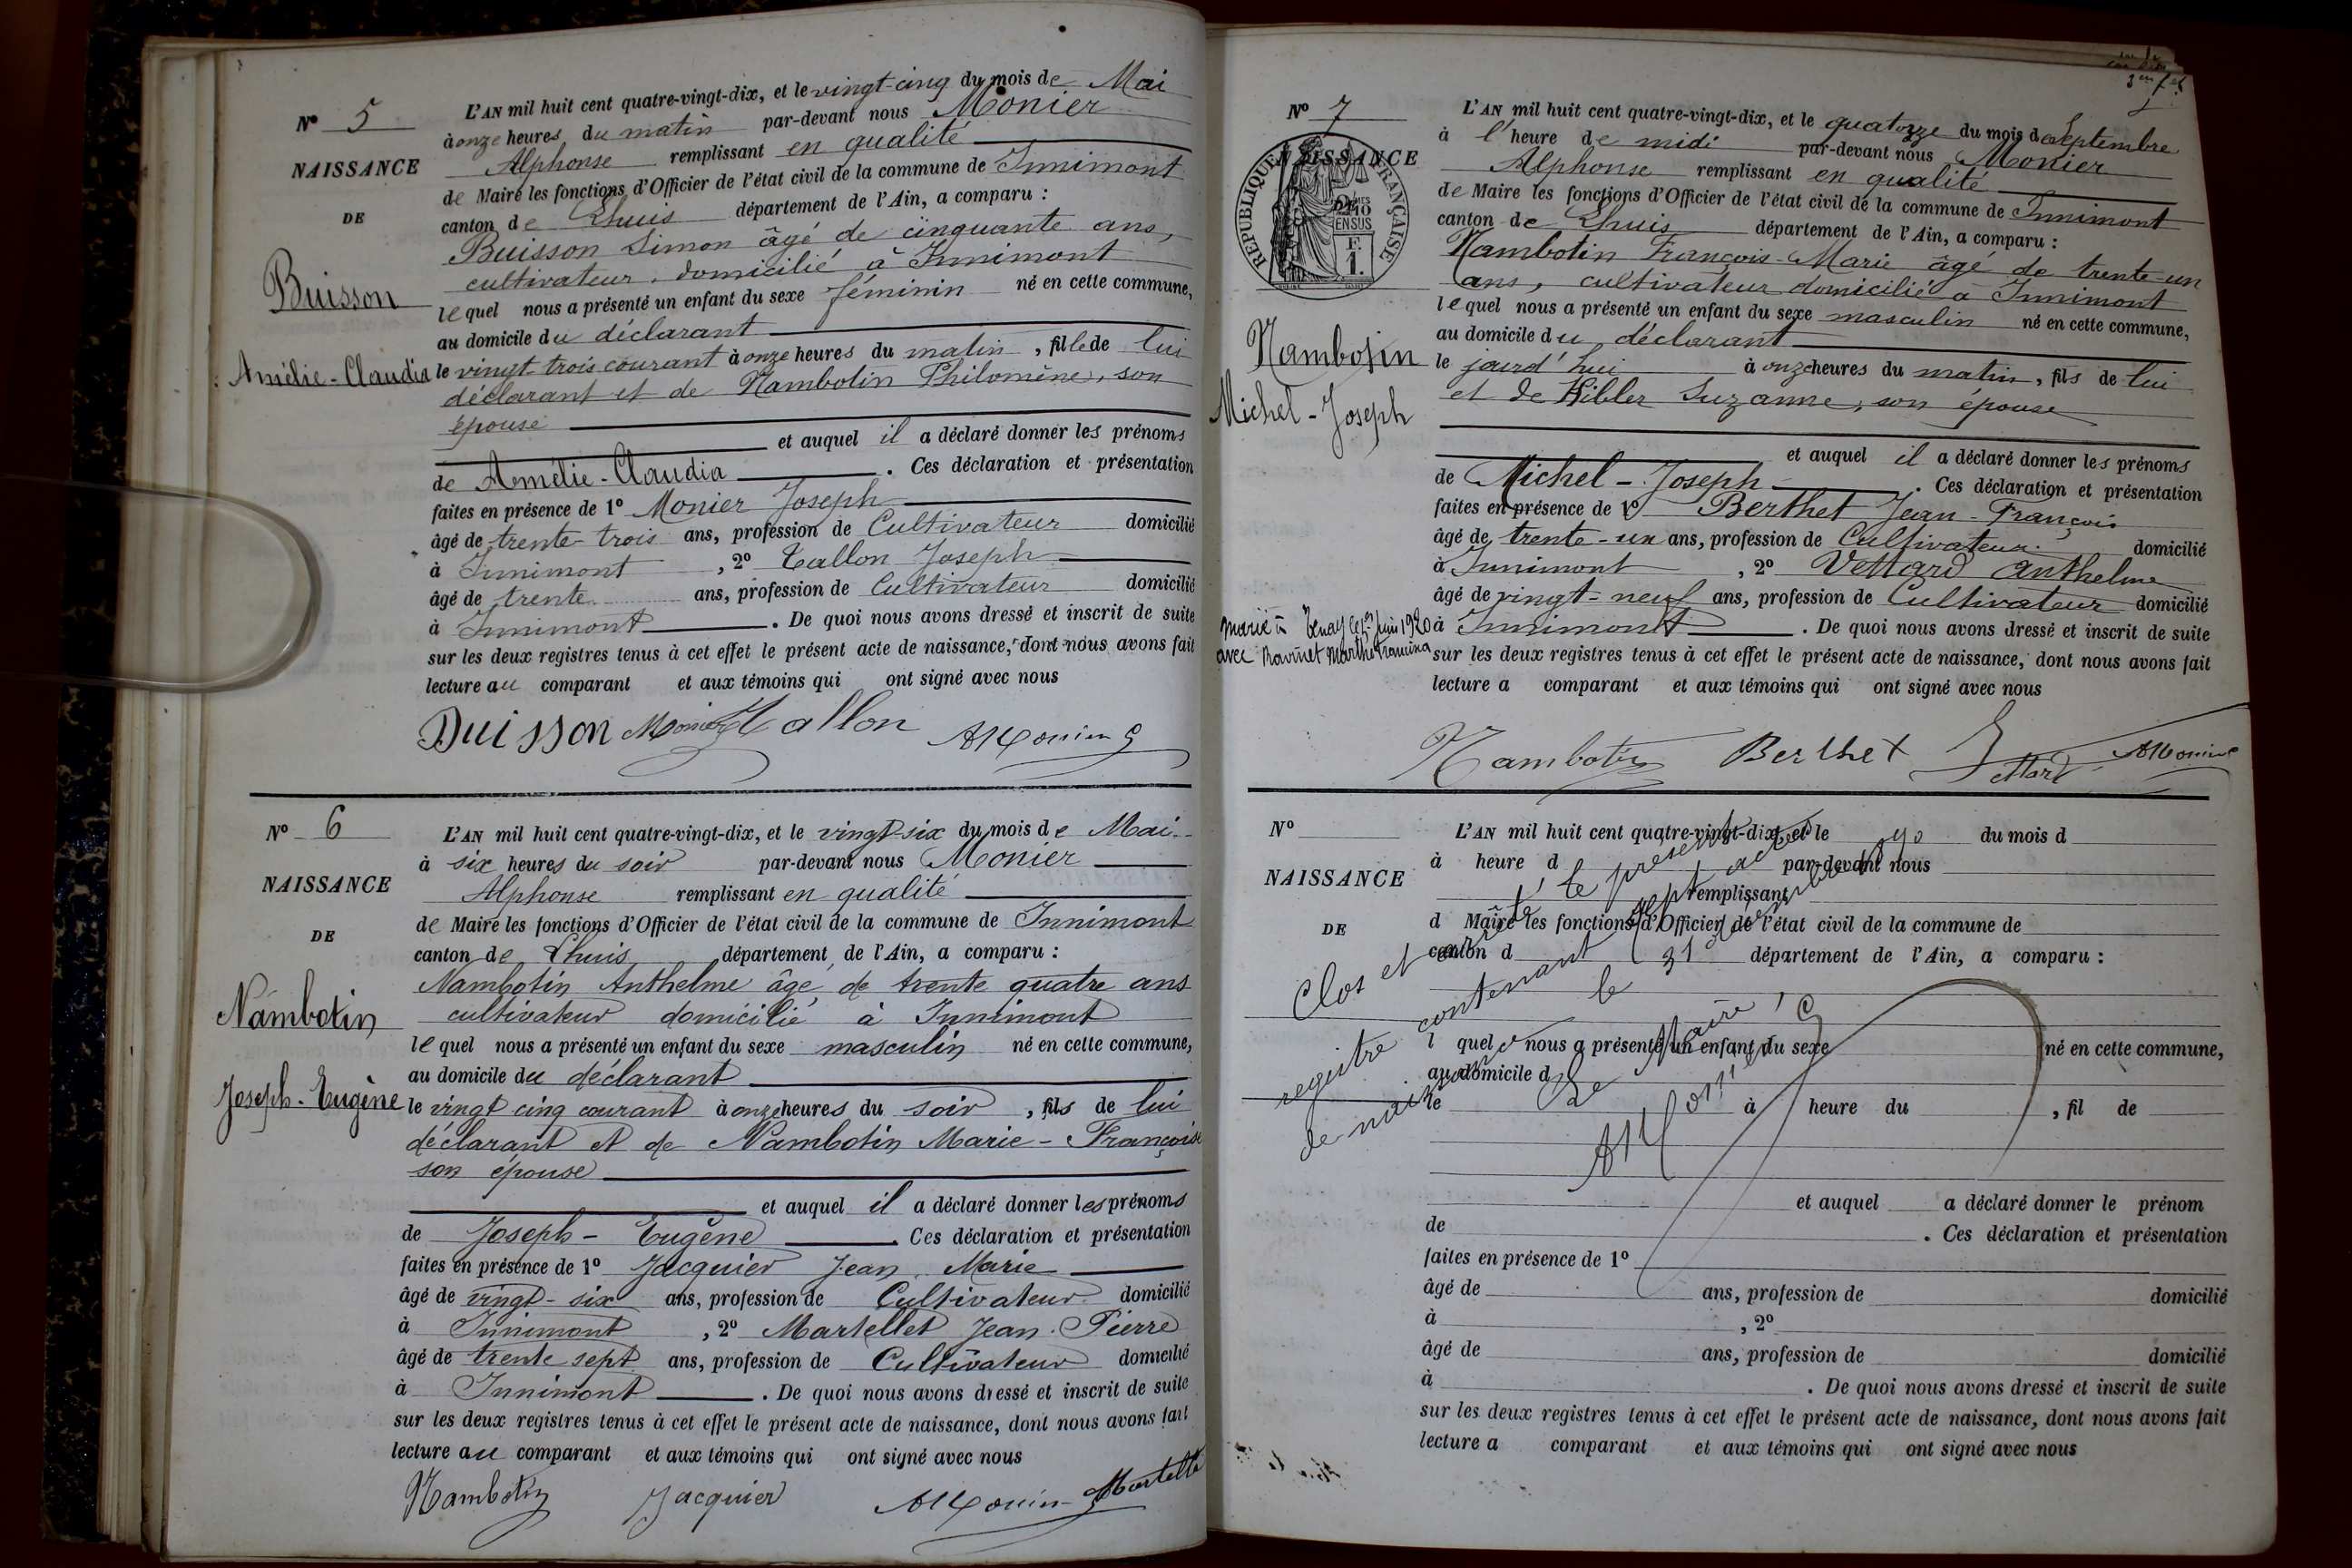 N° 5
NAISSANCE
DE
Buisson
Amélie-Claudia
L'AN mil huit cent quatre-vingt-dix, et le vingt-cinq du mois de Mai
à onze heures du matin par-devant nous Monier
Alphonse remplissant en qualité
de Maire les fonctions d'Officier de l'état civil de la commune de Innimont
canton de Lhuis département de l'Ain, a comparu :
Buisson Simon âgé de cinquante ans,
cultivateur, domicilié à Innimont
lequel nous a présenté un enfant du sexe féminin né en cette commune,
au domicile du déclarant
le vingt-trois courant à onze heures du matin, fille de lui
déclarant et de Nambotin Philomène, son
épouse
et auquel il a déclaré donner les prénoms
de Amélie-Claudia . Ces déclaration et présentation
faites en présence de 1° Monier Joseph
âgé de trente-trois ans, profession de Cultivateur domicilié
à Innimont , 2° Tallon Joseph
âgé de trente ans, profession de Cultivateur domicilié
à Innimont . De quoi nous avons dressé et inscrit de suite
sur les deux registres tenus à cet effet le présent acte de naissance, dont nous avons fait
lecture au comparant et aux témoins qui ont signé avec nous
Buisson Monier Tallon AMonier
N° 6
NAISSANCE
DE
Nambotin
Joseph-Eugène
L'AN mil huit cent quatre-vingt-dix, et le vingt-six du mois de Mai
à six heures du soir par-devant nous Monier
Alphonse remplissant en qualité
de Maire les fonctions d'Officier de l'état civil de la commune de Innimont
canton de Lhuis département de l'Ain, a comparu :
Nambotin Anthelme âgé de trente quatre ans
cultivateur domicilié à Innimont
lequel nous a présenté un enfant du sexe masculin né en cette commune,
au domicile du déclarant
le vingt cinq courant à onze heures du soir , fils de lui
déclarant et de Nambotin Marie-Françoise
son épouse
et auquel il a déclaré donner les prénoms
de Joseph-Eugène . Ces déclaration et présentation
faites en présence de 1° Jacquier Jean Marie
âgé de vingt-six ans, profession de Cultivateur domicilié
à Innimont , 2° Martellet Jean-Pierre
âgé de trente sept ans, profession de Cultivateur domicilié
à Innimont . De quoi nous avons dressé et inscrit de suite
sur les deux registres tenus à cet effet le présent acte de naissance, dont nous avons fait
lecture au comparant et aux témoins qui ont signé avec nous
Nambotin Jacquier AMonier Martellet
N° 7
NAISSANCE
RÉPUBLIQUE FRANÇAISE
2/10 EN SUS
F. 1.
Nambotin
Michel-Joseph
marié à Tenay le Juin 1920
avec Ravinet Marthe
L'AN mil huit cent quatre-vingt-dix, et le quatorze du mois de Septembre
à l'heure de midi par-devant nous Monier
Alphonse remplissant en qualité
de Maire les fonctions d'Officier de l'état civil de la commune de Innimont
canton de Lhuis département de l'Ain, a comparu :
Nambotin François-Marie âgé de trente-un
ans, cultivateur domicilié à Innimont
lequel nous a présenté un enfant du sexe masculin né en cette commune,
au domicile du déclarant
le jourd'hui à onze heures du matin, fils de lui
et de Hibler Suzanne, son épouse
et auquel il a déclaré donner les prénoms
de Michel-Joseph . Ces déclaration et présentation
faites en présence de 1° Berthet Jean-François
âgé de trente-un ans, profession de Cultivateur domicilié
à Innimont , 2° Vettard Anthelme
âgé de vingt-neuf ans, profession de Cultivateur domicilié
à Innimont . De quoi nous avons dressé et inscrit de suite
sur les deux registres tenus à cet effet le présent acte de naissance, dont nous avons fait
lecture a comparant et aux témoins qui ont signé avec nous
Nambotin Berthet Vettard AMonier
N°
NAISSANCE
DE
L'AN mil huit cent quatre-vingt-dix, et le du mois d
à heure d par-devant nous
remplissant
d Maire les fonctions d'Officier de l'état civil de la commune de
canton d département de l'Ain, a comparu :
l quel nous a présenté un enfant du sexe né en cette commune,
au domicile d
le à heure du , fil de
et auquel a déclaré donner le prénom
de . Ces déclaration et présentation
faites en présence de 1°
âgé de ans, profession de domicilié
à , 2°
âgé de ans, profession de domicilié
à . De quoi nous avons dressé et inscrit de suite
sur les deux registres tenus à cet effet le présent acte de naissance, dont nous avons fait
lecture a comparant et aux témoins qui ont signé avec nous
Clos et arrêté le présent
registre contenant sept actes
de naissance le 31 décembre 1890
Le Maire,
AMonier